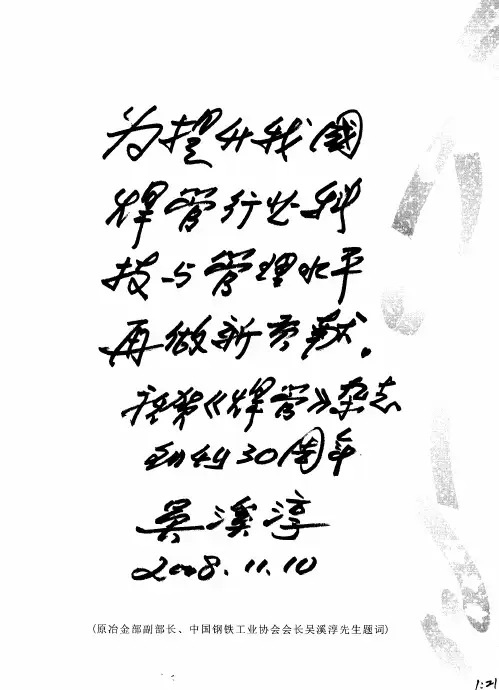 为提升我國
焊管行业科
技与管理水平
再做新贡献。
祝贺《焊管》杂志
创刊30周年
吴溪淳
2008.11.10
(原冶金部副部长、中国钢铁工业协会会长吴溪淳先生题词)
1:21